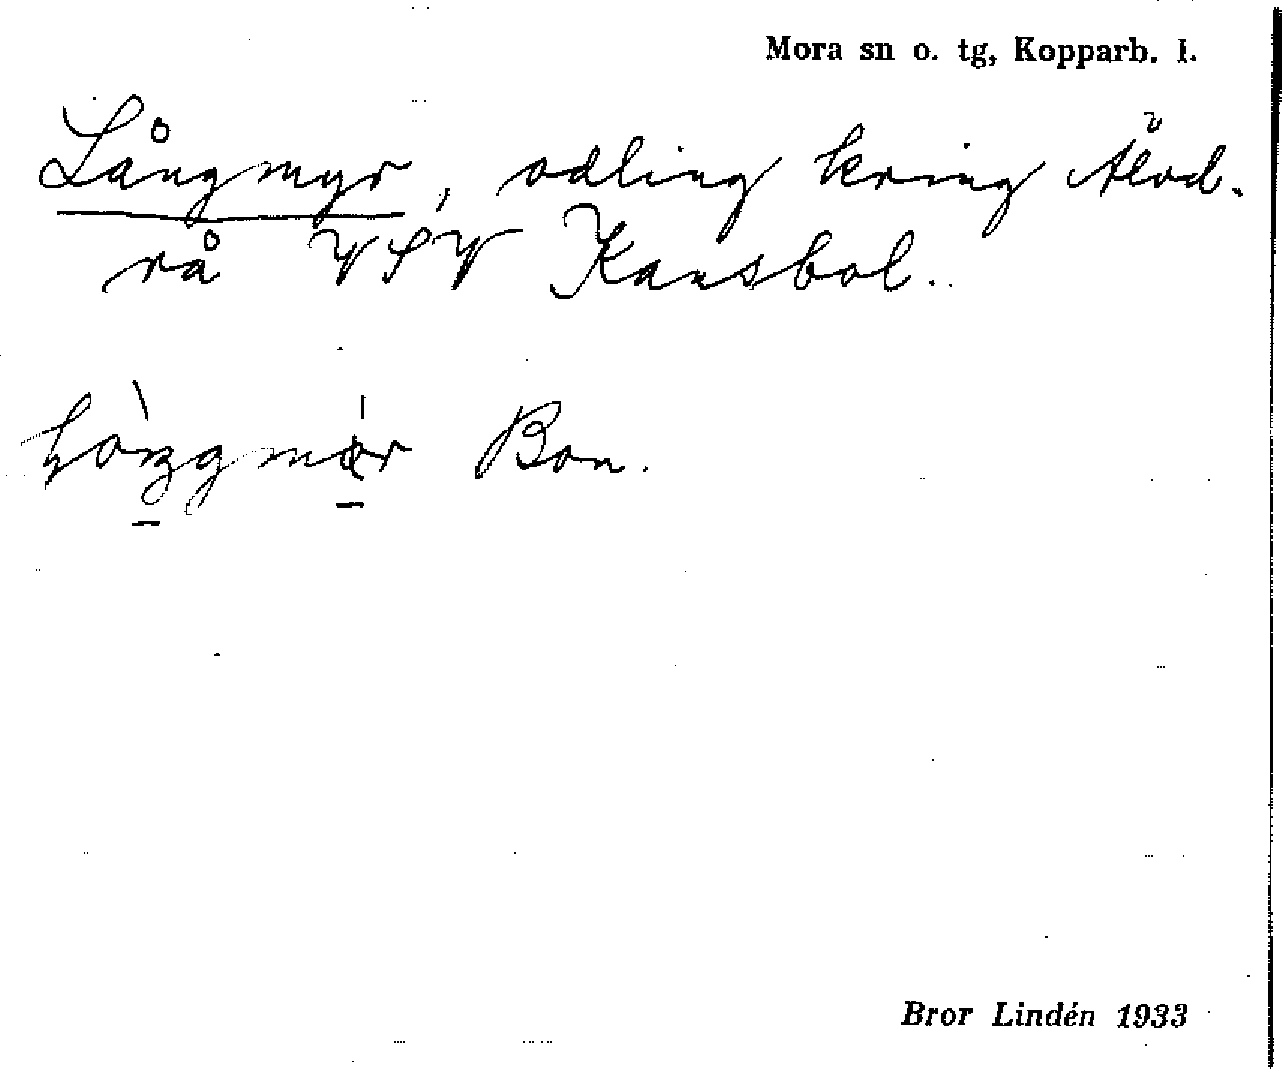 Mora sn o. tg, Kopparb. l.
Långmyr, odling kring Älvd.
rå VSV Kansbol.
Bon.
Bror Lindén 1933